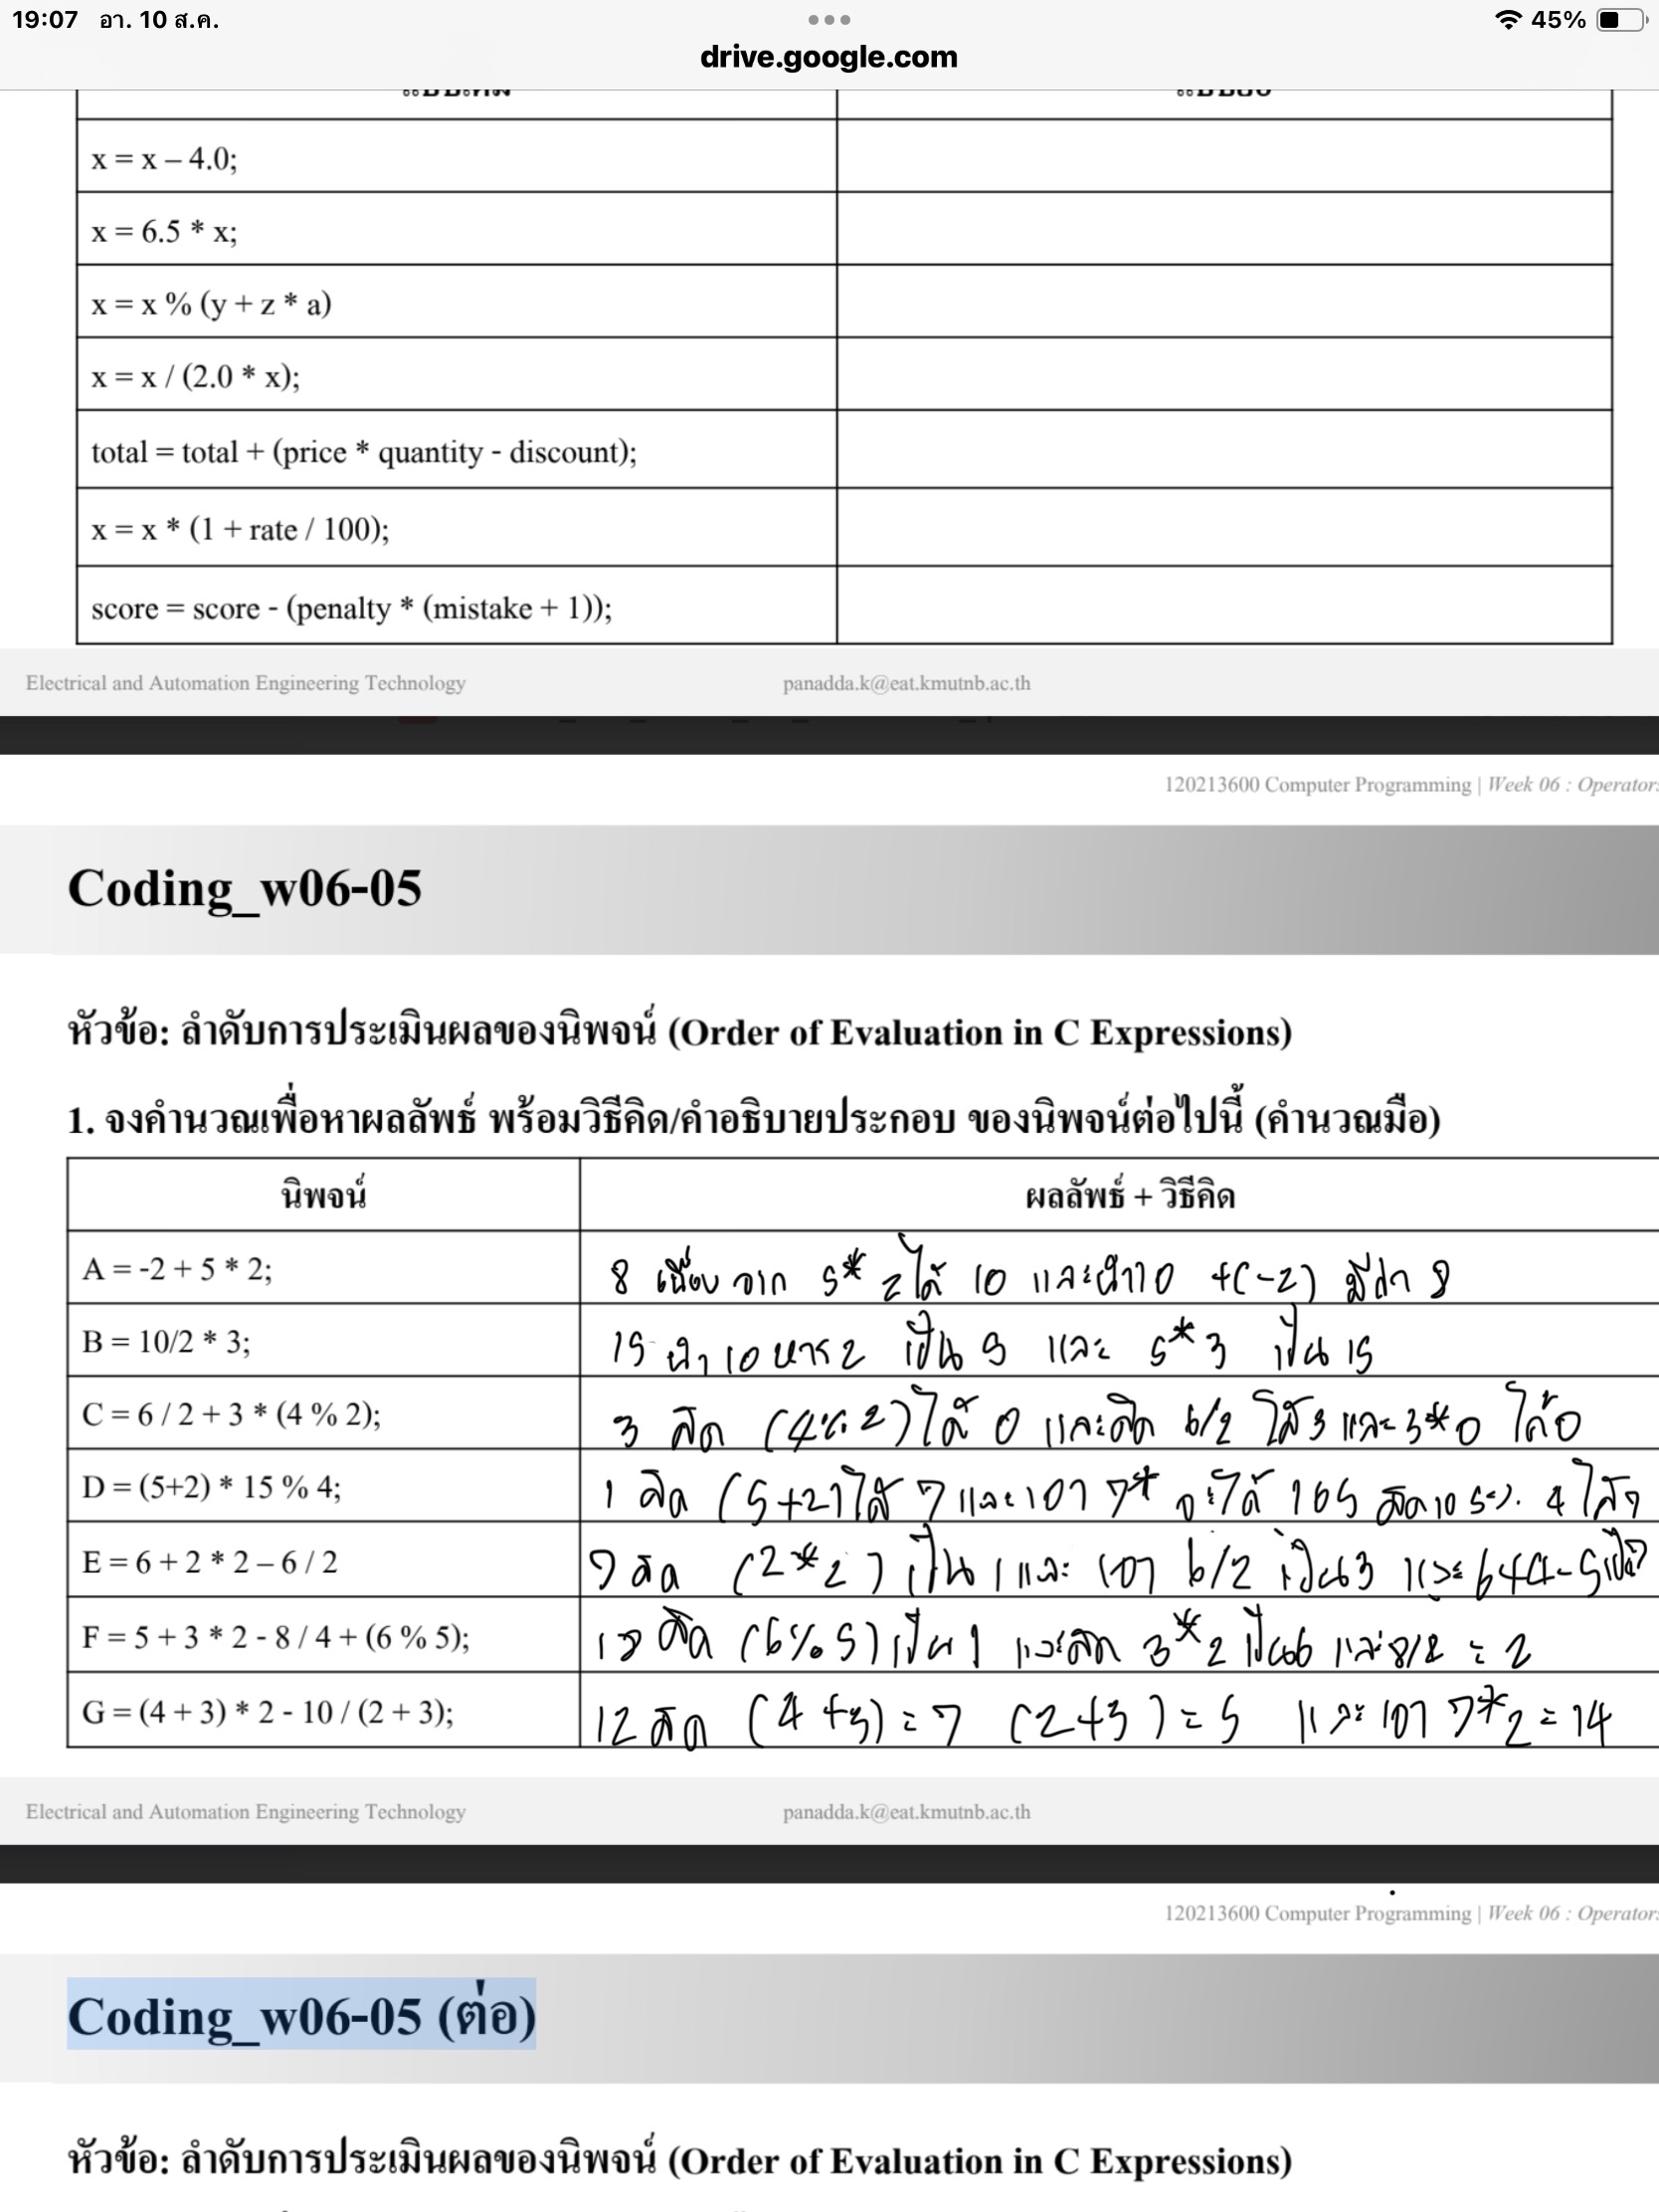 19:07 อา. 10 ส.ค.
45%
drive.google.com
แบบเต็ม แบบย่อ
x = x – 4.0;
x = 6.5 * x;
x = x % (y + z * a)
x = x / (2.0 * x);
total = total + (price * quantity - discount);
x = x * (1 + rate / 100);
score = score - (penalty * (mistake + 1));
Electrical and Automation Engineering Technology panadda.k@eat.kmutnb.ac.th
120213600 Computer Programming | Week 06 : Operators
Coding_w06-05
หัวข้อ: ลำดับการประเมินผลของนิพจน์ (Order of Evaluation in C Expressions)
1. จงคำนวณเพื่อหาผลลัพธ์ พร้อมวิธีคิด/คำอธิบายประกอบ ของนิพจน์ต่อไปนี้ (คำนวณมือ)
นิพจน์ ผลลัพธ์ + วิธีคิด
A = -2 + 5 * 2; 8 เนื่องจาก 5* 2ได้ 10 และนำ10 +(-2) มีค่า 8
B = 10/2 * 3; 15 นำ 10 หาร 2 เป็น 5 และ 5*3 เป็น 15
C = 6 / 2 + 3 * (4 % 2); 3 คิด (4% 2)ได้ 0 และคิด 6/2 ได้3 และ 3*0 ได้0
D = (5+2) * 15 % 4; 1 คิด (5+2)ได้ 7 และเอา 7* จะได้ 105 4 ได้1
E = 6 + 2 * 2 – 6 / 2 7 คิด (2*2) เป็น และ เอา 6/2 เป็น3 และ
F = 5 + 3 * 2 - 8 / 4 + (6 % 5); 10 คิด (6%5) เป็น 1 และคิด 3*2 เป็น6 และ = 2
G = (4 + 3) * 2 - 10 / (2 + 3); 12 คิด (4 +3) = 7 (2+3) = 5 และ เอา 7*2 = 14
Electrical and Automation Engineering Technology panadda.k@eat.kmutnb.ac.th
120213600 Computer Programming | Week 06 : Operators
Coding_w06-05 (ต่อ)
หัวข้อ: ลำดับการประเมินผลของนิพจน์ (Order of Evaluation in C Expressions)